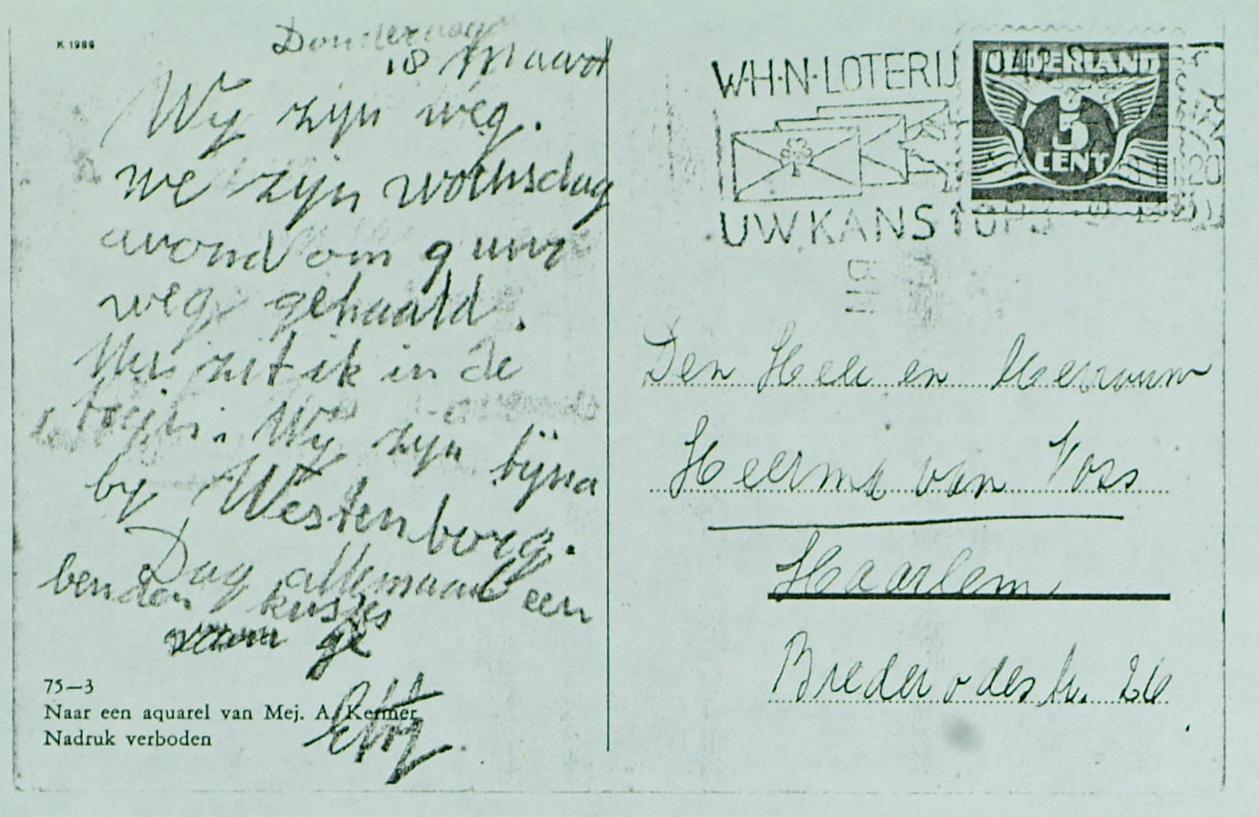 K 1986
Donderdag
18 Maart
Wij zijn weg.
we zijn woensdag
avond om 9 uur
weg gehaald.
Nu zit ik in de
trijn. Wij zijn bijna
bij Westenborg.
Dag allemaal een
benden kusjes
van
Etty
75—3
Naar een aquarel van Mej. A. Kermer
Nadruk verboden
W·H·N·LOTERIJ
UW KANS
NEDERLAND
5
CENT
Den Heer en Mevrouw
Heerma van Voss
Haarlem
Brederodestr. 26